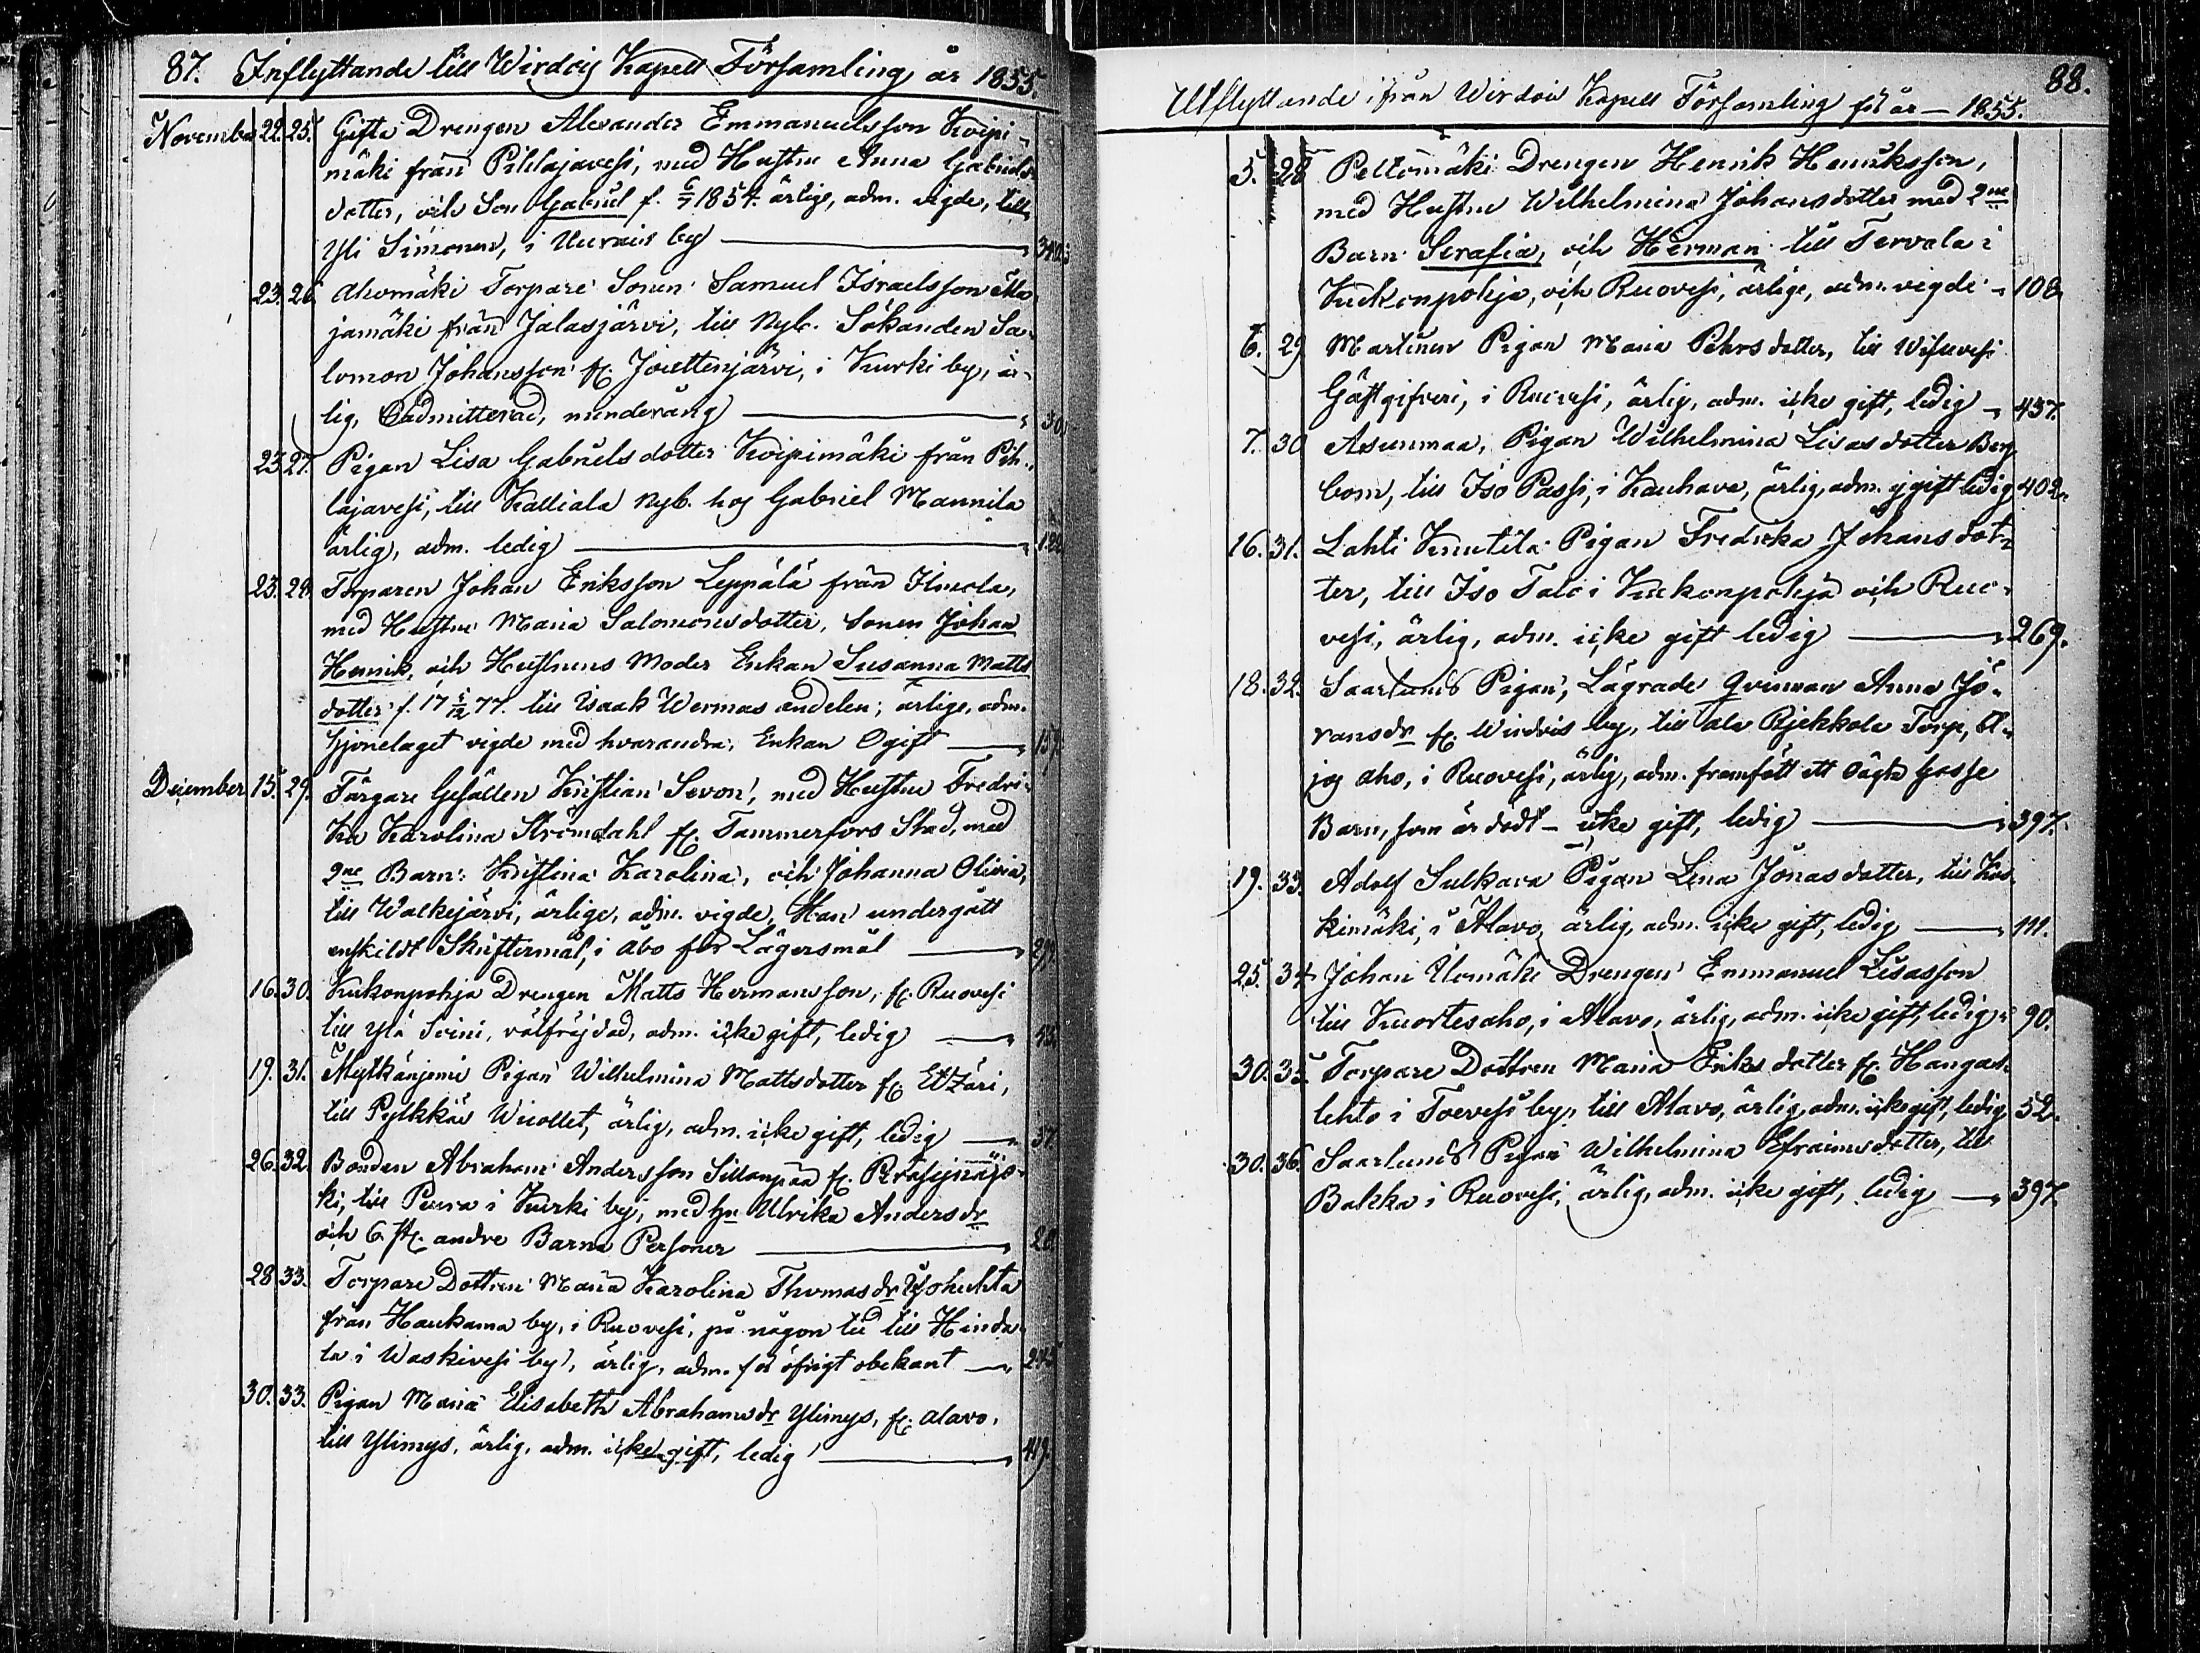 87. Inflyttande till Wirdois Kapell Församling år 1855.
November 22. 25. Gifta Drengen Alexander Emmanuelsson Koipi-
mäki från Pihlajavesi, med Hustru Anna Gabriels
dotter, och Son Gabriel f. 6/7 1854. ärlige, adm. vigde, till
Yli Simonen, i Uurais by 340.
23. 26. Ahomäki Torpare Sonen Samuel Israelsson Ma
jamäki från Jalasjärvi, till Nyb. Sökanden Sa-
lomon Johansson fr. Jouttenjärvi, i Kurki by, är-
lig, Oadmitterad, minderårig 30.
23. 27. Pigan Lisa Gabrielsdotter Koipimäki från Pih-
lajavesi, till Kalliala Nyb. hos Gabriel Mannila
ärlig, adm. ledig
23. 28. Torparen Johan Eriksson Leppälä från Ilmola,
med Hustru Maria Salomonsdotter, Sonen Johan
Henrik, och Hustruns Moder Enkan Susanna Matts
dotter f. 17 5/12 77. till Isaak Wermas andelen; ärlige, adm.
hjonelaget vigde med hvarandra, Enkan Ogift 159.
December 15. 29. Färgare Gesällen Kristian Sevon, med Hustru Fredri-
ka Karolina Strömdahl fr. Tammerfors Stad, med
2ne Barn: Kristina Karolina, och Johanna Olivia,
till Walkejärvi, ärlige, adm. vigde, Han undergått
enskildt Skriftermål, i Åbo för Lägersmål 299.
16. 30. Kukonpohja Drengen Matts Hermansson, fr. Ruovesi
till Ylä Soini, välfrejdad, adm. icke gift, ledig
19. 31. Myllkänjemi Pigan Wilhelmina Mattsdotter fr. Etzäri,
till Pylkkäs Wuollet, ärlig, adm. icke gift, ledig 37.
26. 32. Bonden Abraham Andersson Sillanpää fr. Peräsejnäjo-
ki, till Purra i Kurki by, med hu Ulrika Andersdr
och 6 st. andre Barna Personer 20.
28. 33. Torpare Dottren Maria Karolina Thomasdr Yokuhta
från Haukama by, i Ruovesi, på någon tid till Hinda-
la i Waskivesi by, ärlig, adm. för öfrigt obekant 245
30. 33. Pigan Maria Elisabeth Abrahamsdr Ylimys, fr. Alavo,
till Ylimys, ärlig, adm. icke gift, ledig 419.
88.
Utflyttande ifrån Wirdois Kapell Församling för år - 1855.
5. 28 Peltomäki Drengen Henrik Henriksson,
med Hustru Wilhelmina Johansdotter med 2ne
Barn Serafia, och Herman till Tervala i
Kukonpohja, och Ruovesi, ärlige, adm. vigde 108.
6. 29 Martinen Pigan Maria Pehrsdotter, till Wisuvesi
Gästgifveri, i Ruovesi, ärlig, adm. icke gift, ledig 437.
7. 30 Asunmaa, Pigan Wilhelmina Lisasdotter Berg
bom, till Iso Passi, i Kauhava, ärlig, adm. ej gift ledig 402.
16. 31. Lahti Knuutila Pigan Fredrika Johansdot-
ter, till Iso Talo i Kukonpohja och Ruo-
vesi, ärlig, adm. icke gift ledig 269.
18. 32. Saarlund Pigan, Lägrade Qvinnan Anna Jö-
ransdr fr. Wirdois by, till Ala Pjekkola Torp,
jas aho, i Ruovesi, ärlig, adm. framfött ett oägta Gosse
Barn, som är dödt - icke gift, ledig 397.
19. 33. Adolf Sulkava Pigan Lena Jonasdotter, till Kos-
kimäki, i Alavo, ärlig, adm. icke gift, ledig 111.
25. 34. Johan Ulomäki Drengen Emmanuel Lisasson
till Kuortesaho, i Alavo, ärlig, adm. icke gift, ledig 90.
30. 35. Torpare Dottren Maria Eriksdotter fr. Hangas-
lehto i Toevesi by, till Alavo, ärlig, adm. icke gift, ledig 52.
30. 36. Saarlund Pigan Wilhelmina Efraimsdotter, till
Bakka i Ruovesi, ärlig, adm. icke gift, ledig 397.